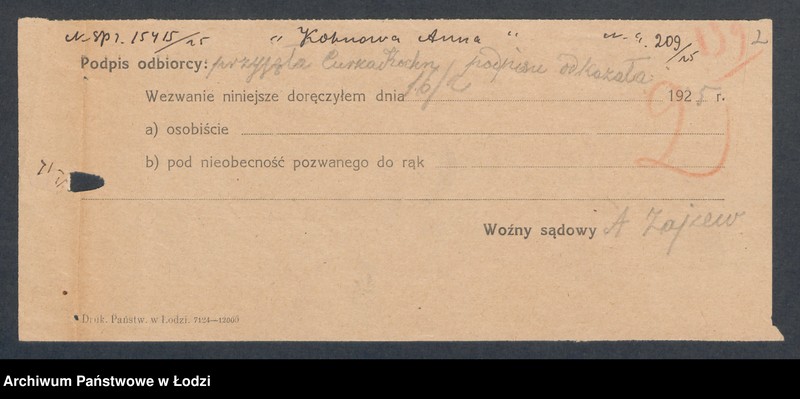 N. spr. 15415/25 " Kohnowa Anna " N. 209/25 139/2
Podpis odbiorcy: przyjęła Curka Kochn podpisu odkazała
Wezwanie niniejsze doręczyłem dnia 16/2 1925 r.
a) osobiście
b) pod nieobecność pozwanego do rąk
Woźny sądowy A Zajcew
Druk. Państw. w Łodzi. 7124—12000
Archiwum Państwowe w Łodzi